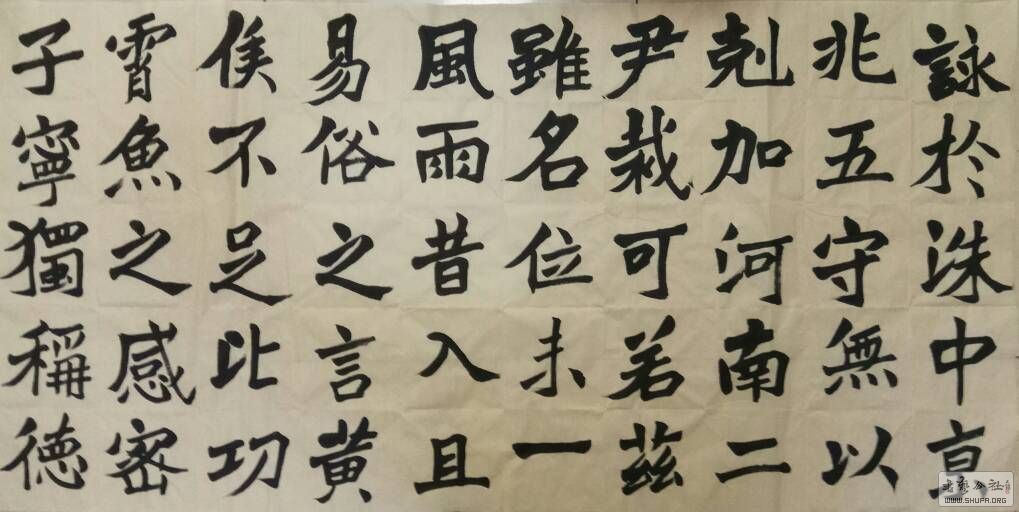 詠於洙中亰
兆五守無以
剋加河南二
尹栽可若茲
雖名位未一
風雨昔入且
易俗之言黃
侯不足比功
霄魚之感密
子寧獨稱德
书艺公社
WWW.SHUFA.ORG